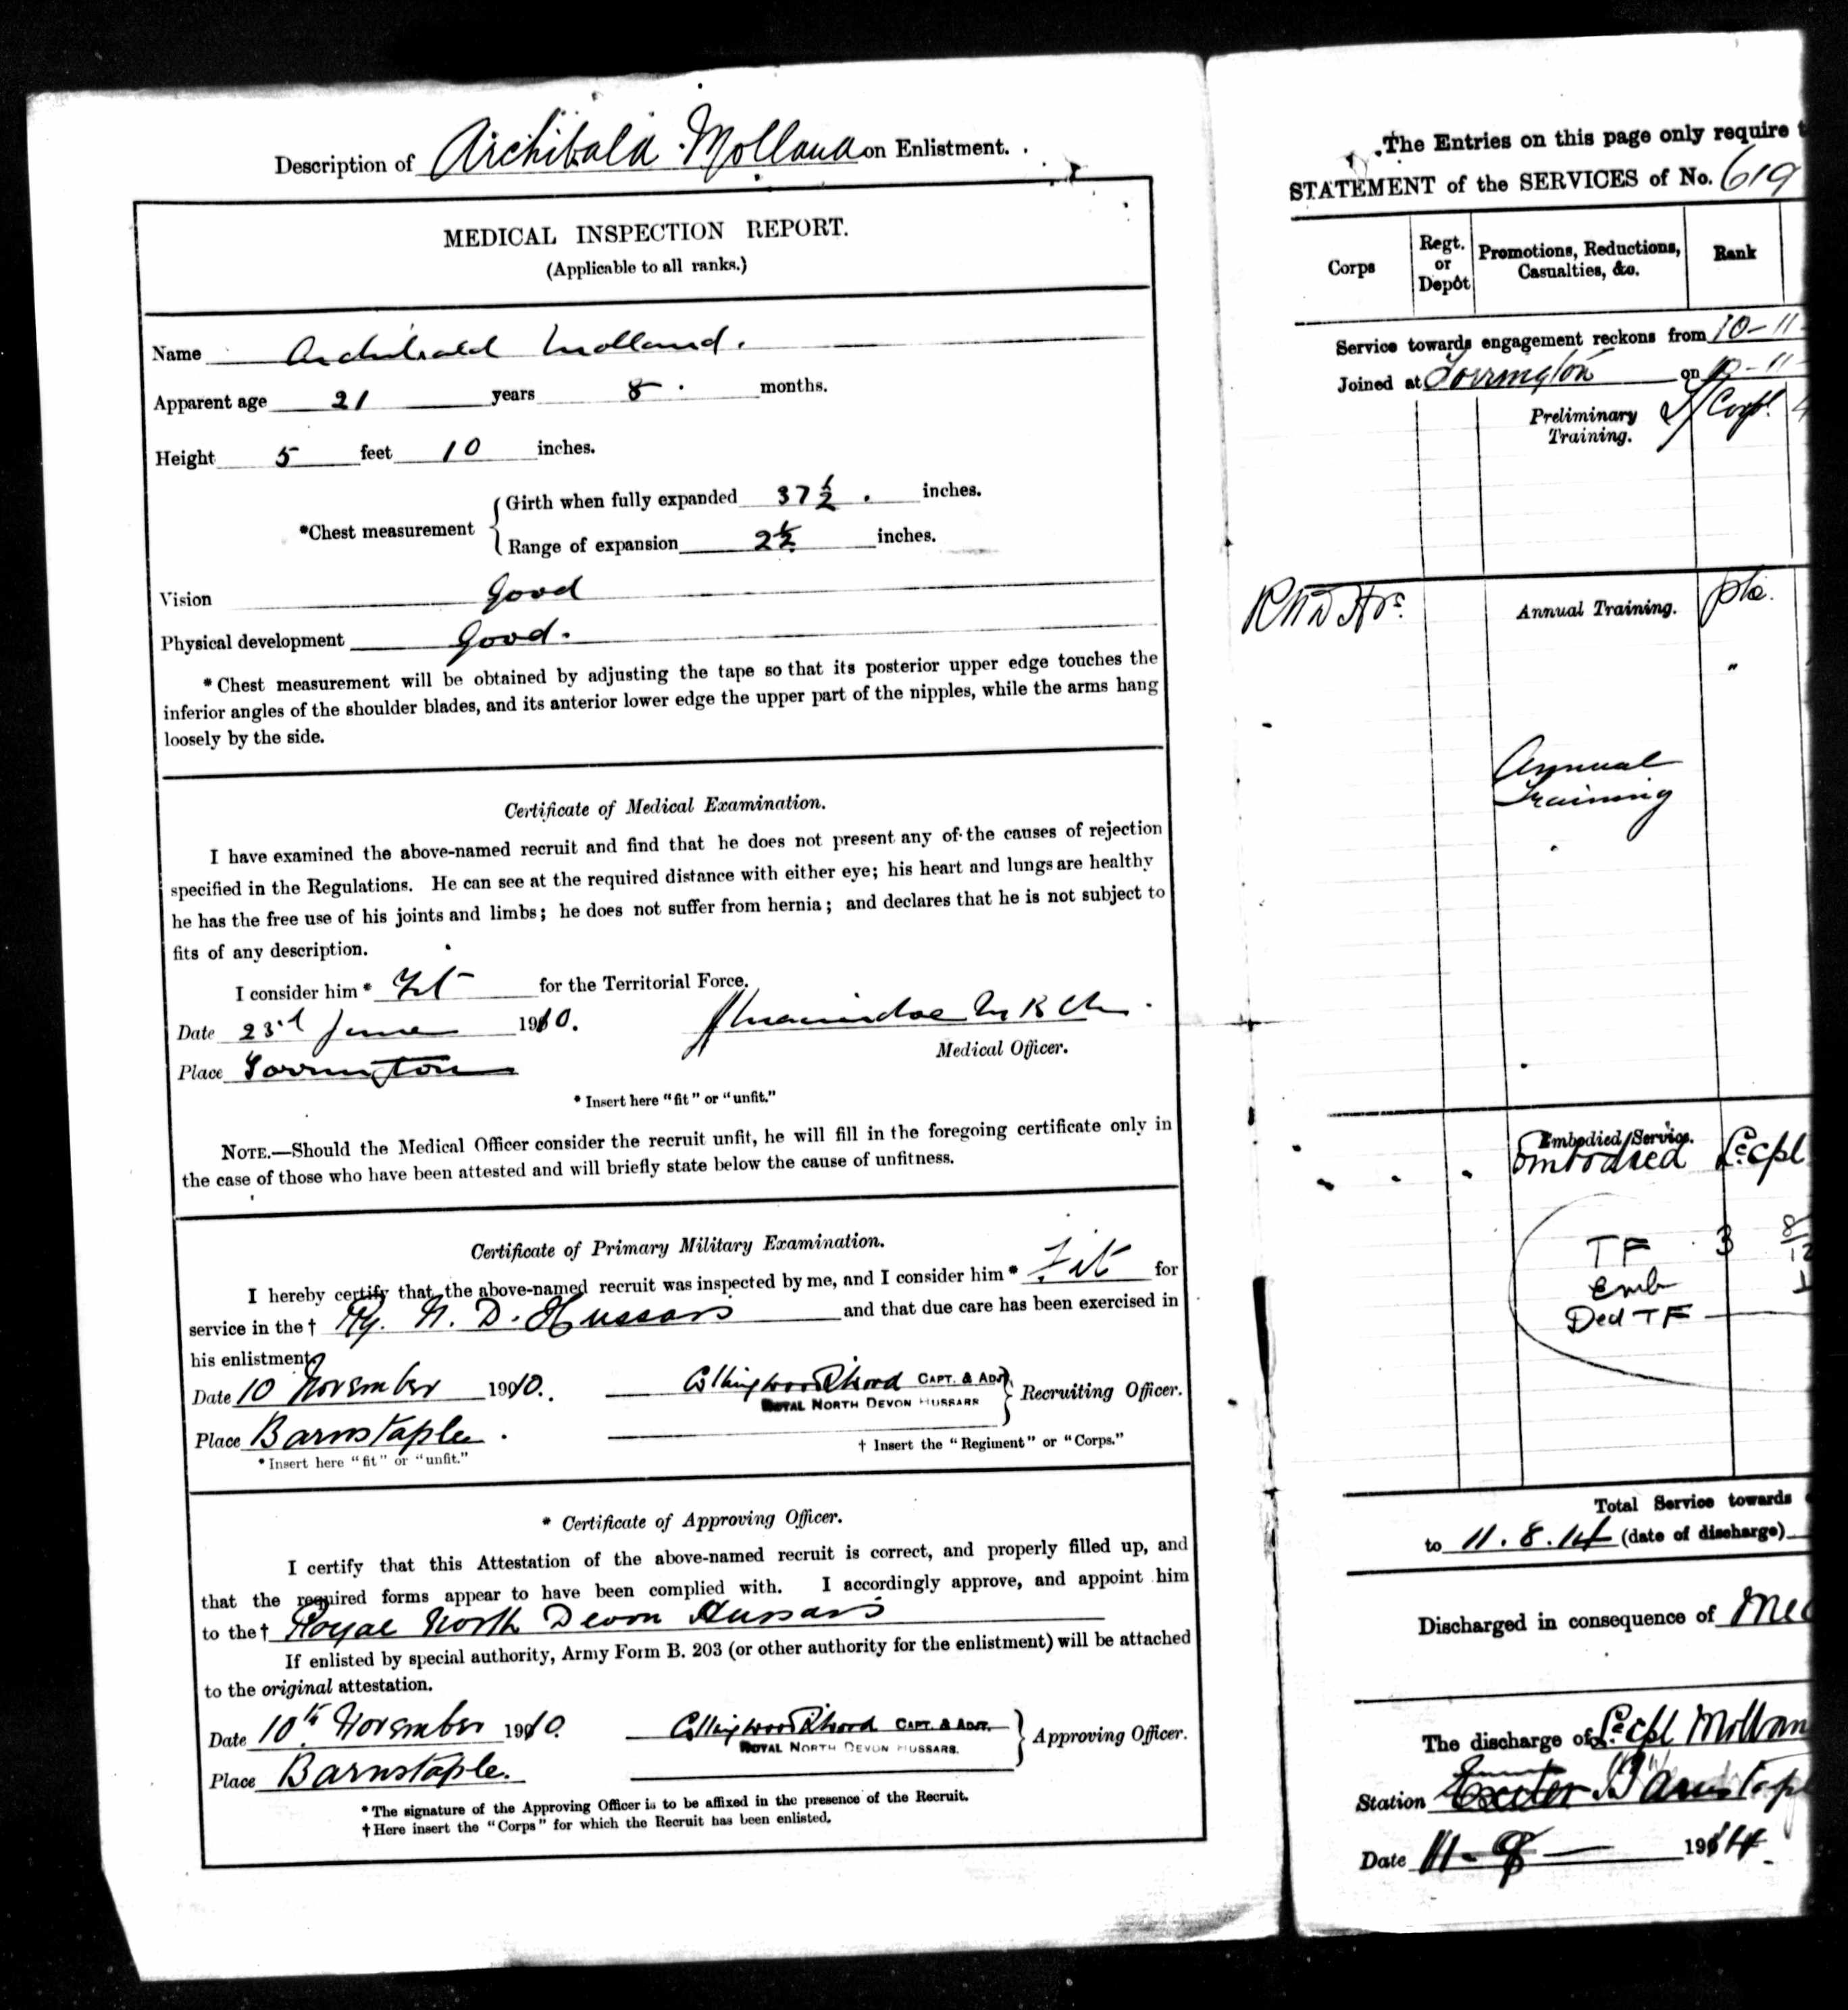 Description of Archibald Molland on Enlistment.
MEDICAL INSPECTION REPORT.
(Applicable to all ranks.)
Name Archibald Molland.
Apparent age 21 years 8 months.
Height 5 feet 10 inches.
*Chest measurement
Girth when fully expanded 37½ inches.
Range of expansion 2½ inches.
Vision Good
Physical development Good.
*Chest measurement will be obtained by adjusting the tape so that its posterior upper edge touches the
inferior angles of the shoulder blades, and its anterior lower edge the upper part of the nipples, while the arms hang
loosely by the side.
Certificate of Medical Examination.
I have examined the above-named recruit and find that he does not present any of the causes of rejection
specified in the Regulations. He can see at the required distance with either eye; his heart and lungs are healthy
he has the free use of his joints and limbs; he does not suffer from hernia; and declares that he is not subject to
fits of any description.
I consider him * Fit for the Territorial Force.
Date 23rd June 1910.
Medical Officer.
Place Torrington
* Insert here "fit" or "unfit."
NOTE.—Should the Medical Officer consider the recruit unfit, he will fill in the foregoing certificate only in
the case of those who have been attested and will briefly state below the cause of unfitness.
Certificate of Primary Military Examination.
I hereby certify that the above-named recruit was inspected by me, and I consider him * Fit for
service in the † Ry. N. D. Hussars and that due care has been exercised in
his enlistment.
Date 10 November 1910. CAPT. & ADJT. Recruiting Officer.
ROYAL NORTH DEVON HUSSARS
Place Barnstaple.
† Insert the "Regiment" or "Corps."
* Insert here "fit" or "unfit."
* Certificate of Approving Officer.
I certify that this Attestation of the above-named recruit is correct, and properly filled up, and
that the required forms appear to have been complied with. I accordingly approve, and appoint him
to the † Royal North Devon Hussars
If enlisted by special authority, Army Form B. 203 (or other authority for the enlistment) will be attached
to the original attestation.
Date 10th November 1910 CAPT. & ADJT. Approving Officer.
ROYAL NORTH DEVON HUSSARS.
Place Barnstaple.
* The signature of the Approving Officer is to be affixed in the presence of the Recruit.
† Here insert the "Corps" for which the Recruit has been enlisted.
The Entries on this page only require
STATEMENT of the SERVICES of No. 619
Corps
Regt. or Depôt
Promotions, Reductions, Casualties, &c.
Rank
Service towards engagement reckons from 10-11-
Joined at Torrington on 10-11-
Preliminary Training.
L/Corpl.
R N D Hrs.
Annual Training.
Pte.
"
Annual
Training
Embodied Service.
Embodied Lce cpl
TF 3 8/12
Emb
Ded TF
Total Service towards
to 11.8.14 (date of discharge)
Discharged in consequence of
The discharge of Lce cpl
Station Exeter Barnstaple
Date 11-8-1914.